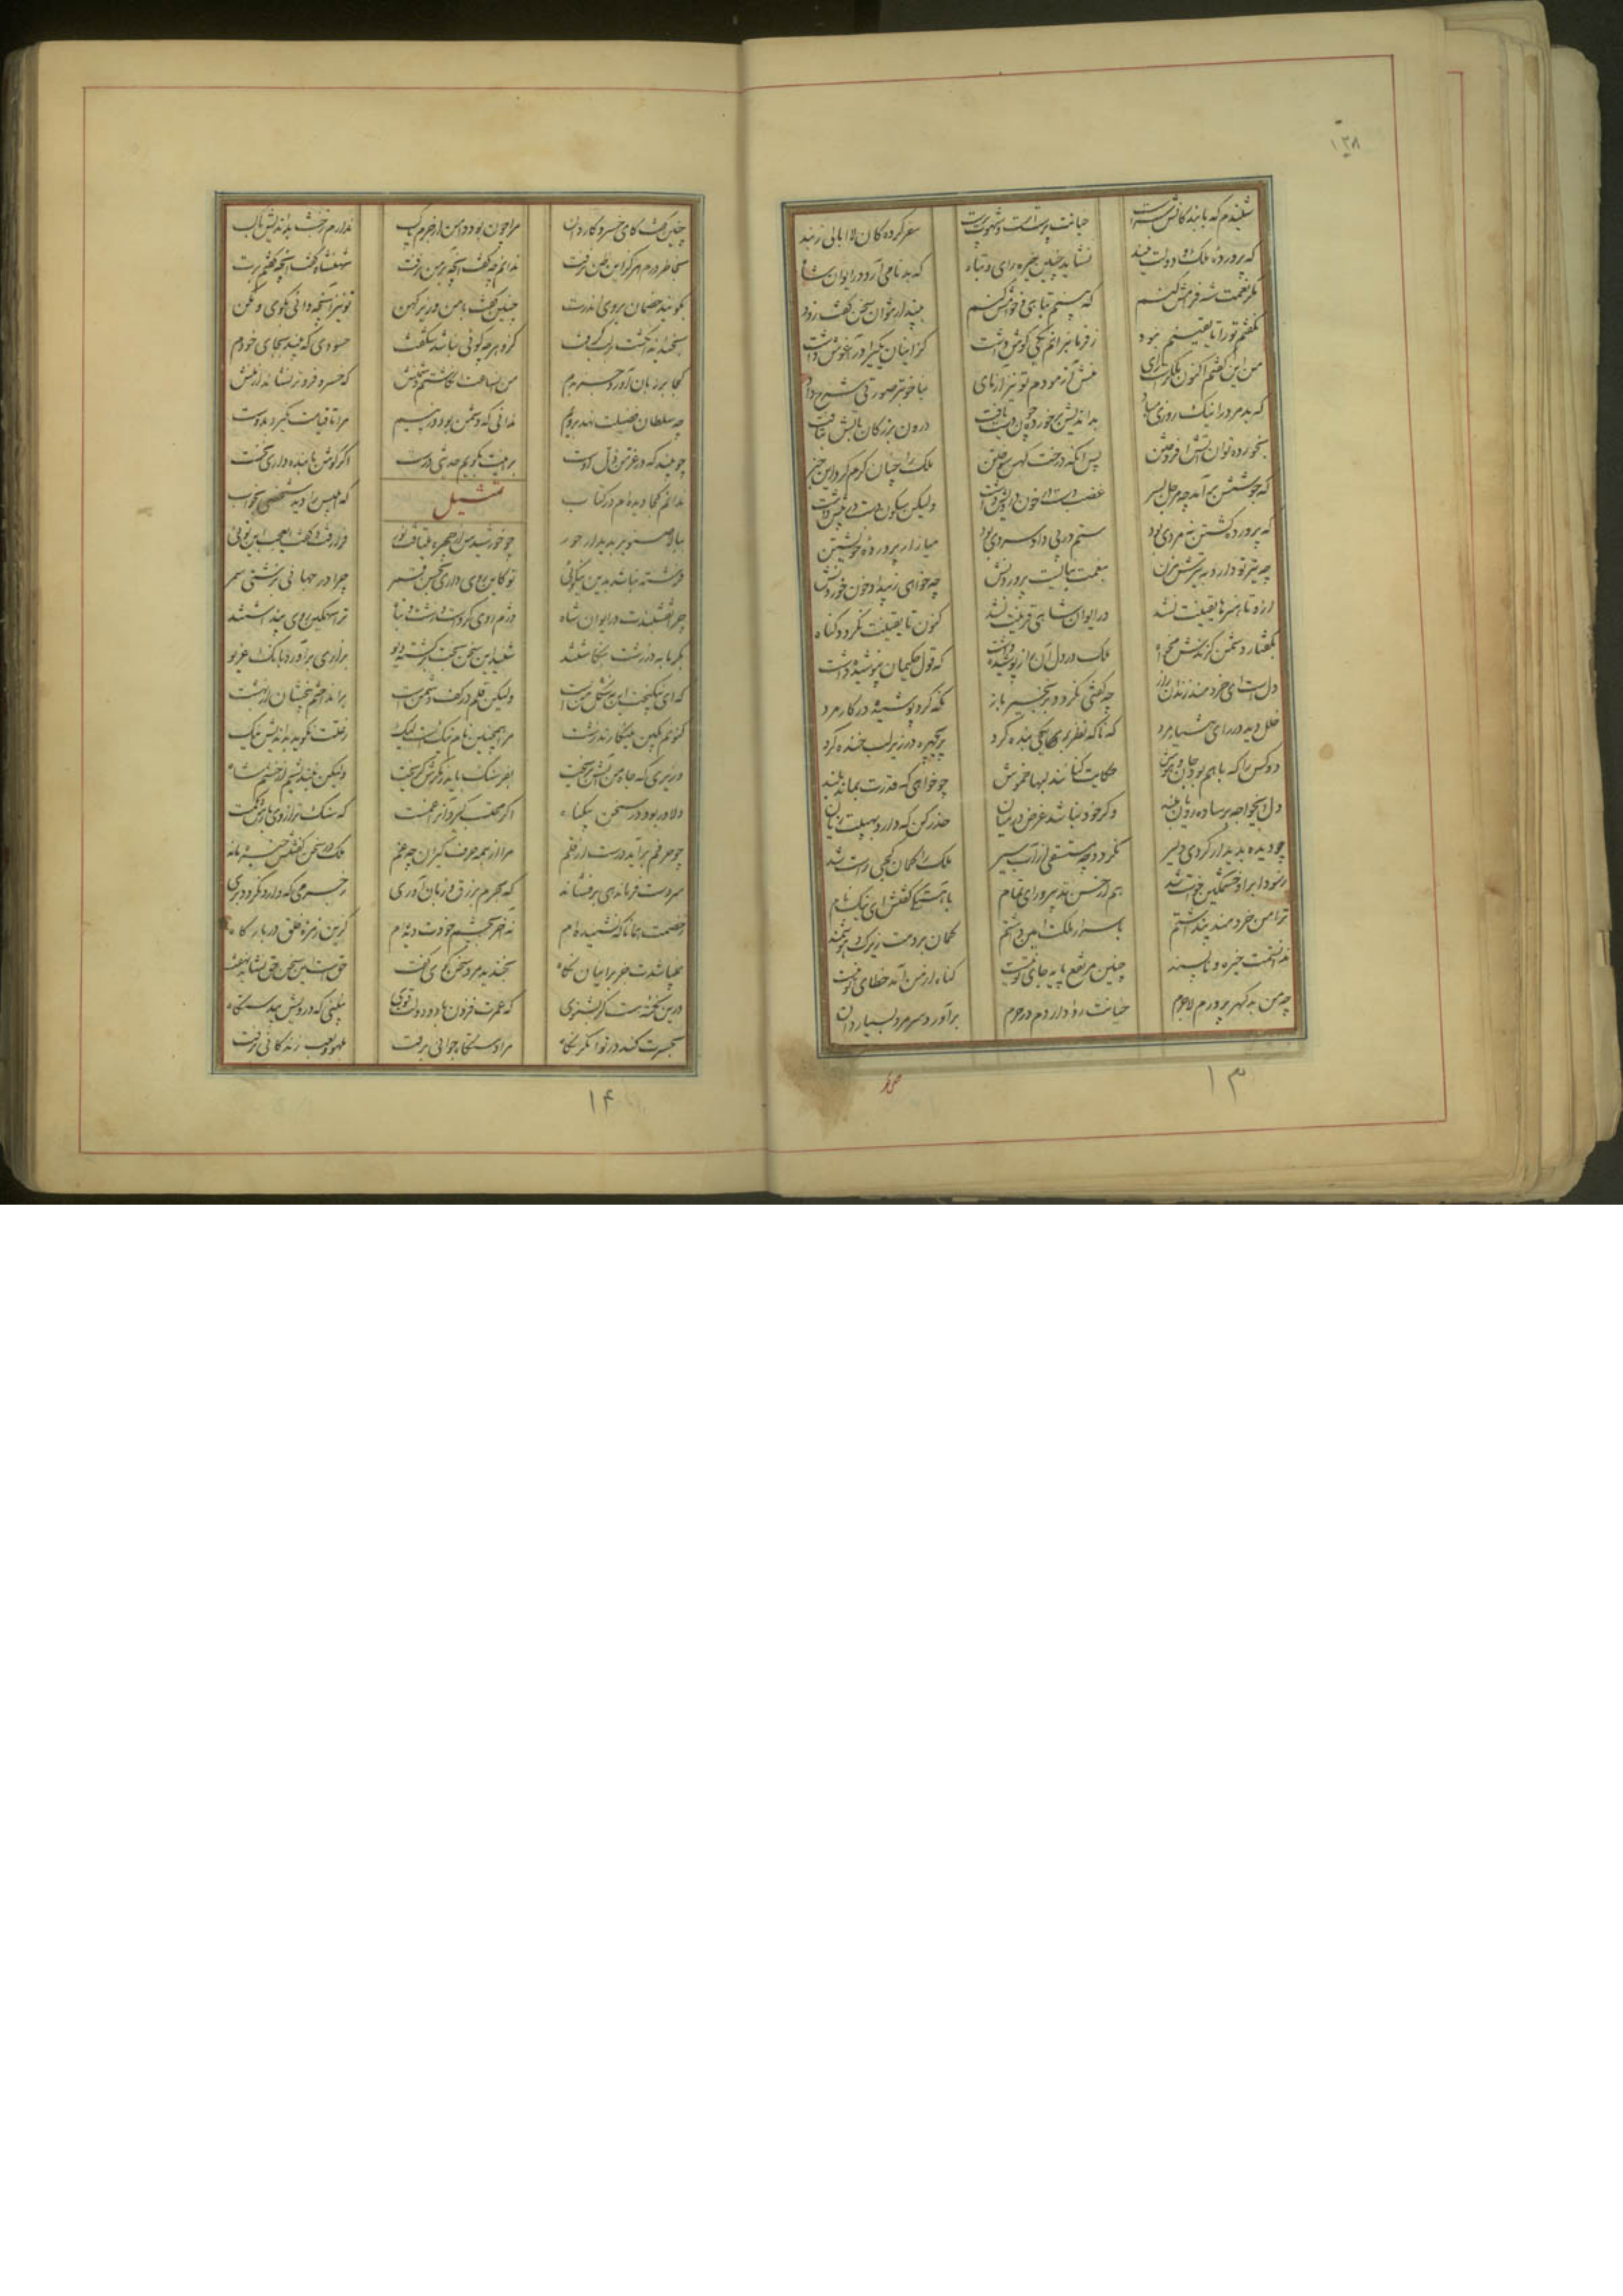 ۱۳۸
شنیدم که با بندگانش سرست خیانت پرستست و شهوت پرست سفر کردگان لاابالی زیند
که پرورده ملک و دولت نیند نشاید چنین خیره رای و تباه که بدنامی آرد در ایوان شاه
مگر نعمت شه فرامش کنم که بینم تباهی و خامش کنم مپندار نتوان سخن گفت زود
نگفتم تو را تا یقینم نبود ز فرمانبرانم یکی گوش داشت کز اینان یکی را در آغوش داشت
من این گفتم اکنون ملک راست رای منش آزمودم تو نیز آزمای بناخوبتر صورتی شرح داد
که بد مرد را نیک روزی مباد بداندیش بر خورده چون دست یافت درون بزرگان بآتش بتافت
بخورده توان آتش افروختن پس آنگه درخت کهن سوختن ملک را چنان گرم کرد این خبر
که جوشش برآمد چو مرجل بسر غضب دست در خون درویش داشت ولیکن سکون دست در پیش داشت
که پرورده کشتن نه مردی بود ستم در پی داد سردی بود میازار پرورده خویشتن
چو تیر تو دارد به تیرش مزن بنعمت نبایست پروردنش چو خواهی ببیداد خون خوردنش
ازو تا هنرها یقینت نشد در ایوان شاهی قرینت نشد کنون تا یقینت نگردد گناه
بگفتار دشمن گزندش مخواه ملک در دل آن راز پوشیده داشت که قول حکیمان نیوشیده داشت
دل است ای خردمند زندان راز چو گفتی نگردد بزنجیر باز نگه کرد پوشیده در کار مرد
خلل دید در رای هشیار مرد که ناگه نظر بر یکی بنده کرد پریچهره در زیر لب خنده کرد
دو کس را که با هم بود جان و هوش حکایت کنانند لبها خموش چو خواهی که قدرت بماند بلند
دل ایخواجه بر ساده رویان مبند وگر خود نباشد غرض در میان حذر کن که دارد بهیبت زیان
چو دیده بدیدار کردی دلیر نگردد چو مستسقی از آب سیر ملک را گمان کجی راست شد
ز سودا بر او خشمگین خواست شد هم از حسن تدبیر و رای تمام بآهستگی گفتش ای نیک نام
ترا من خردمند پنداشتم باسرار ملکت امین داشتم گمان بردمت زیرک و هوشمند
ندانستمت خیره و ناپسند چنین مرتفع پایه جای تو نیست گناه از من آمد خطای تو نیست
چو من بد گهر پرورم لاجرم خیانت روا داردم در حرم برآورد سر مرد بسیار دان
۱۳
چنین گفت کای خسرو کاردان مرا چون بود دامن از جرم پاک ندارم ز خبث بداندیش باک
بخاطر درم هرگز این ظن نرفت ندانم که گفت آنچه بر من نرفت شهنشاه گفت آنچه گفتم برت
بگویند خصمان بروی اندرت چنین گفت با من وزیر کهن تو نیز آنچه دانی بگوی و بکن
بخندید و انگشت بر لب گرفت کزو هرچه گوئی نباشد شگفت حسودی که بیند بجای خودم
کجا بر زبان آورد جز بدم من آن ساعت انگاشتم دشمنش که خسرو فروتر نشاند از منش
چو سلطان فضیلت نهد برویم ندانی که دشمن بود در پیم مرا تا قیامت نگیرد بدوست
چو بیند که در عز من ذل اوست برینت بگویم حدیثی درست اگر گوش با بنده داری نخست
ندانم کجا دیده ام در کتاب تمثیل که ابلیس را دید شخصی بخواب
ببالا صنوبر بدیدار حور چو خورشیدش از چهره میتافت نور فرا رفت و گفت ای عجب این توئی
فرشته نباشد بدین نیکوئی تو کاین روی داری بحسن قمر چرا در جهانی بزشتی سمر
چرا نقشبندت در ایوان شاه دژم روی کردست و زشت و تباه ترا سهمگین روی پنداشتند
بگرمابه در زشت بنگاشتند شنید این سخن بخت برگشته دیو بزاری برآورد بانگ و غریو
که ای نیکبخت این نه شکل منست ولیکن قلم در کف دشمنست برانداختم بیخشان از بهشت
کنونم بکین مینگارند زشت مرا همچنین نام نیکست لیک ز علت نگوید بداندیش نیک
وزیری که جاه من آبش بریخت بفرسنگ باید ز مکرش گریخت ولیکن نیندیشم از خشم شاه
دلاور بود در سخن بیگناه اگر محتسب گیرد آنرا غمست که سنگ ترازوی بارش کمست
چو حرفم برآید درست از قلم مرا از همه حرف گیران چه غم ملک در سخن گفتنش خیره ماند
سر دست فرماندهی برفشاند که مجرم بزرق و زبان آوری ز جرمی که دارد نگردد بری
ز خصمت همانا که نشنیده ام نه آخر بچشم خودت دیده ام کزین زمره خلق در بارگاه
نمیباشدت جز در اینان نگاه بخندید مرد سخن گوی گفت حق است این سخن حق نشاید نهفت
درین نکته هست اگر بشنوی که عمرت فزون باد و دولت قوی نبینی که درویش بیدستگاه
بحسرت کند در توانگر نگاه مرا دستگاه جوانی برفت بلهو و لعب زندگانی برفت
۱۴